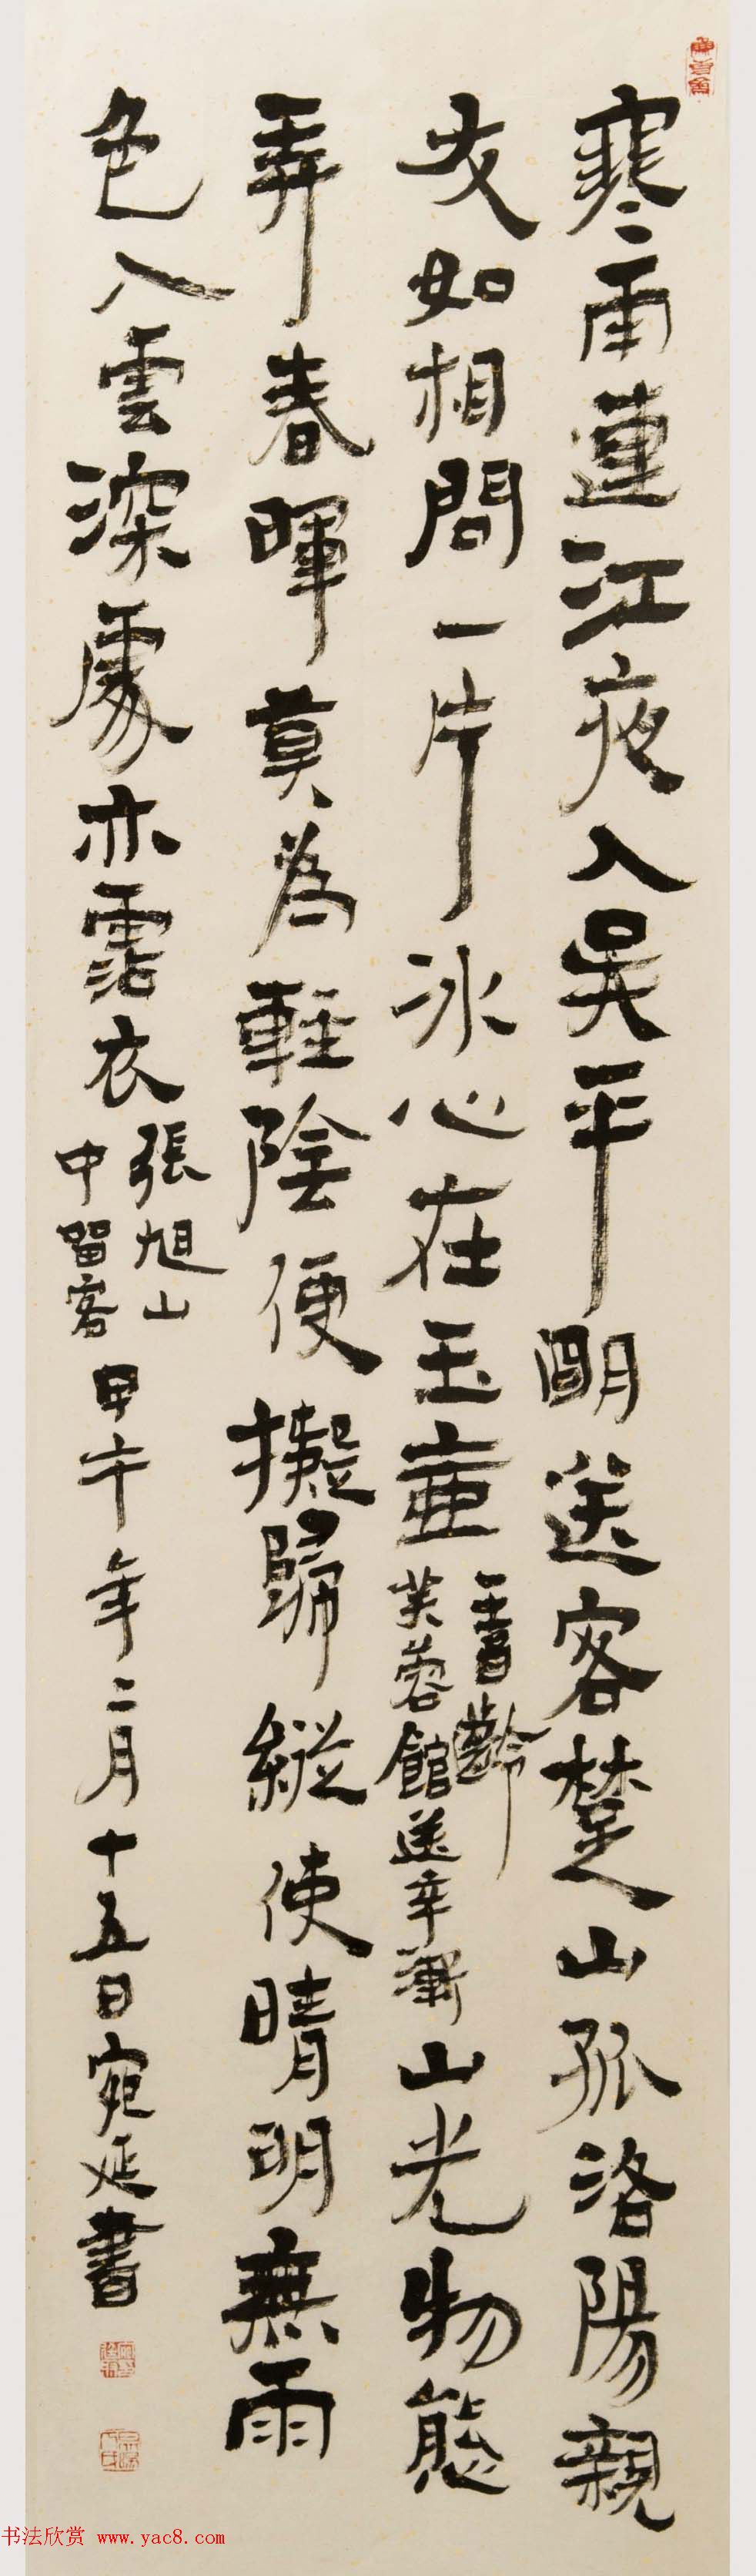 寒雨連江夜入吴平明送客楚山孤洛陽親
友如相問一片冰心在玉壺
王昌齡
芙蓉館送辛漸
山光物態
弄春暉莫為輕陰便擬歸縱使晴明無雨
色入雲深處亦霑衣
張旭山
中留客
甲午年二月十五日宛延書
书法欣赏 www.yac8.com